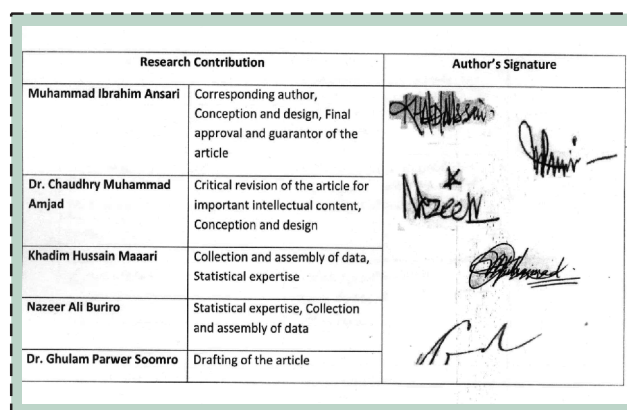 Research Contribution
Author's Signature
Muhammad Ibrahim Ansari
Corresponding author,
Conception and design, Final
approval and guarantor of the
article
Dr. Chaudhry Muhammad
Amjad
Critical revision of the article for
important intellectual content,
Conception and design
Khadim Hussain Maaari
Collection and assembly of data,
Statistical expertise
Nazeer Ali Buriro
Statistical expertise, Collection
and assembly of data
Dr. Ghulam Parwer Soomro
Drafting of the article
NazeeR